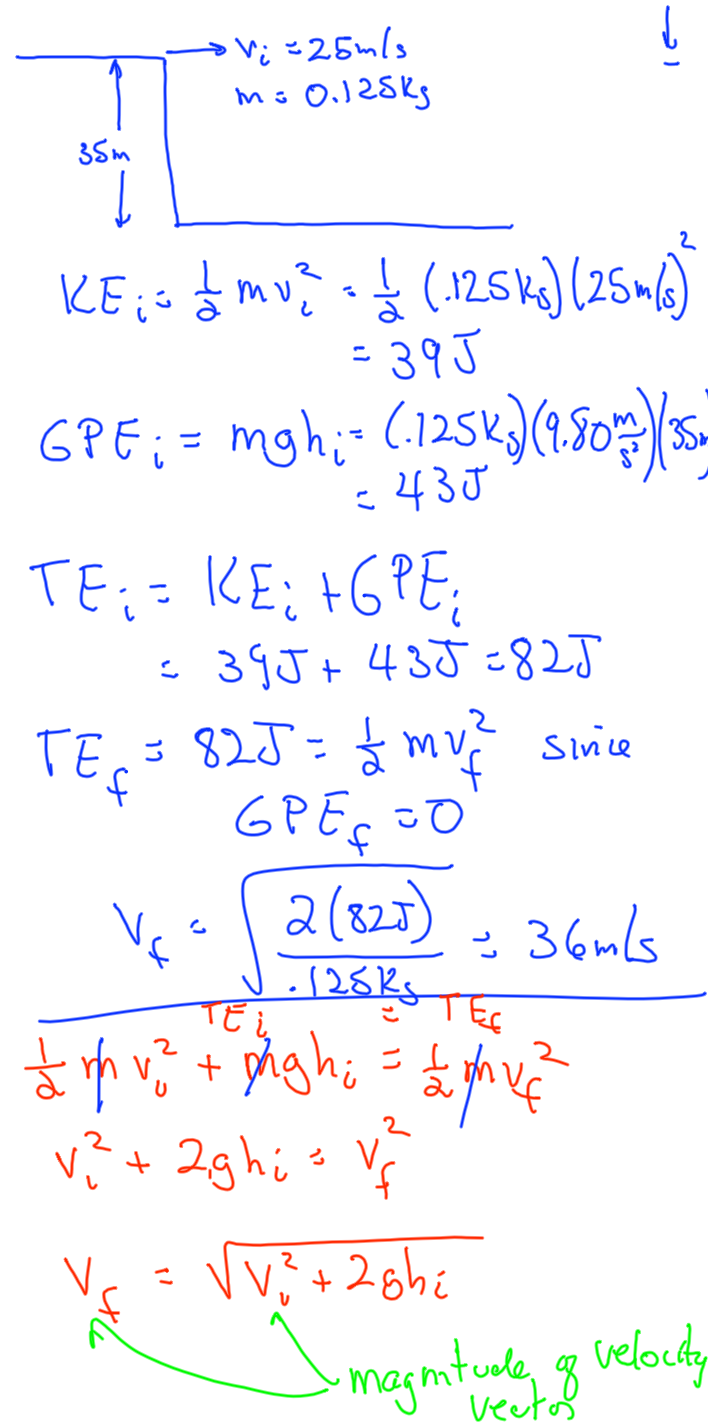 vᵢ = 25m/s
m = 0.125kg
35m
KEᵢ = 1/2 mvᵢ² = 1/2 (.125kg)(25m/s)²
= 39J
GPEᵢ = mghᵢ = (.125kg)(9.80 m/s²)(35m)
= 43J
TEᵢ = KEᵢ + GPEᵢ
= 39J + 43J = 82J
TE_f = 82J = 1/2 mv_f² since
GPE_f = 0
V_f = √(2(82J)/.125kg) = 36m/s
TEᵢ = TE_f
1/2 mvᵢ² + mghᵢ = 1/2 mv_f²
vᵢ² + 2ghᵢ = v_f²
V_f = √(vᵢ² + 2ghᵢ)
magnitude of velocity
vector